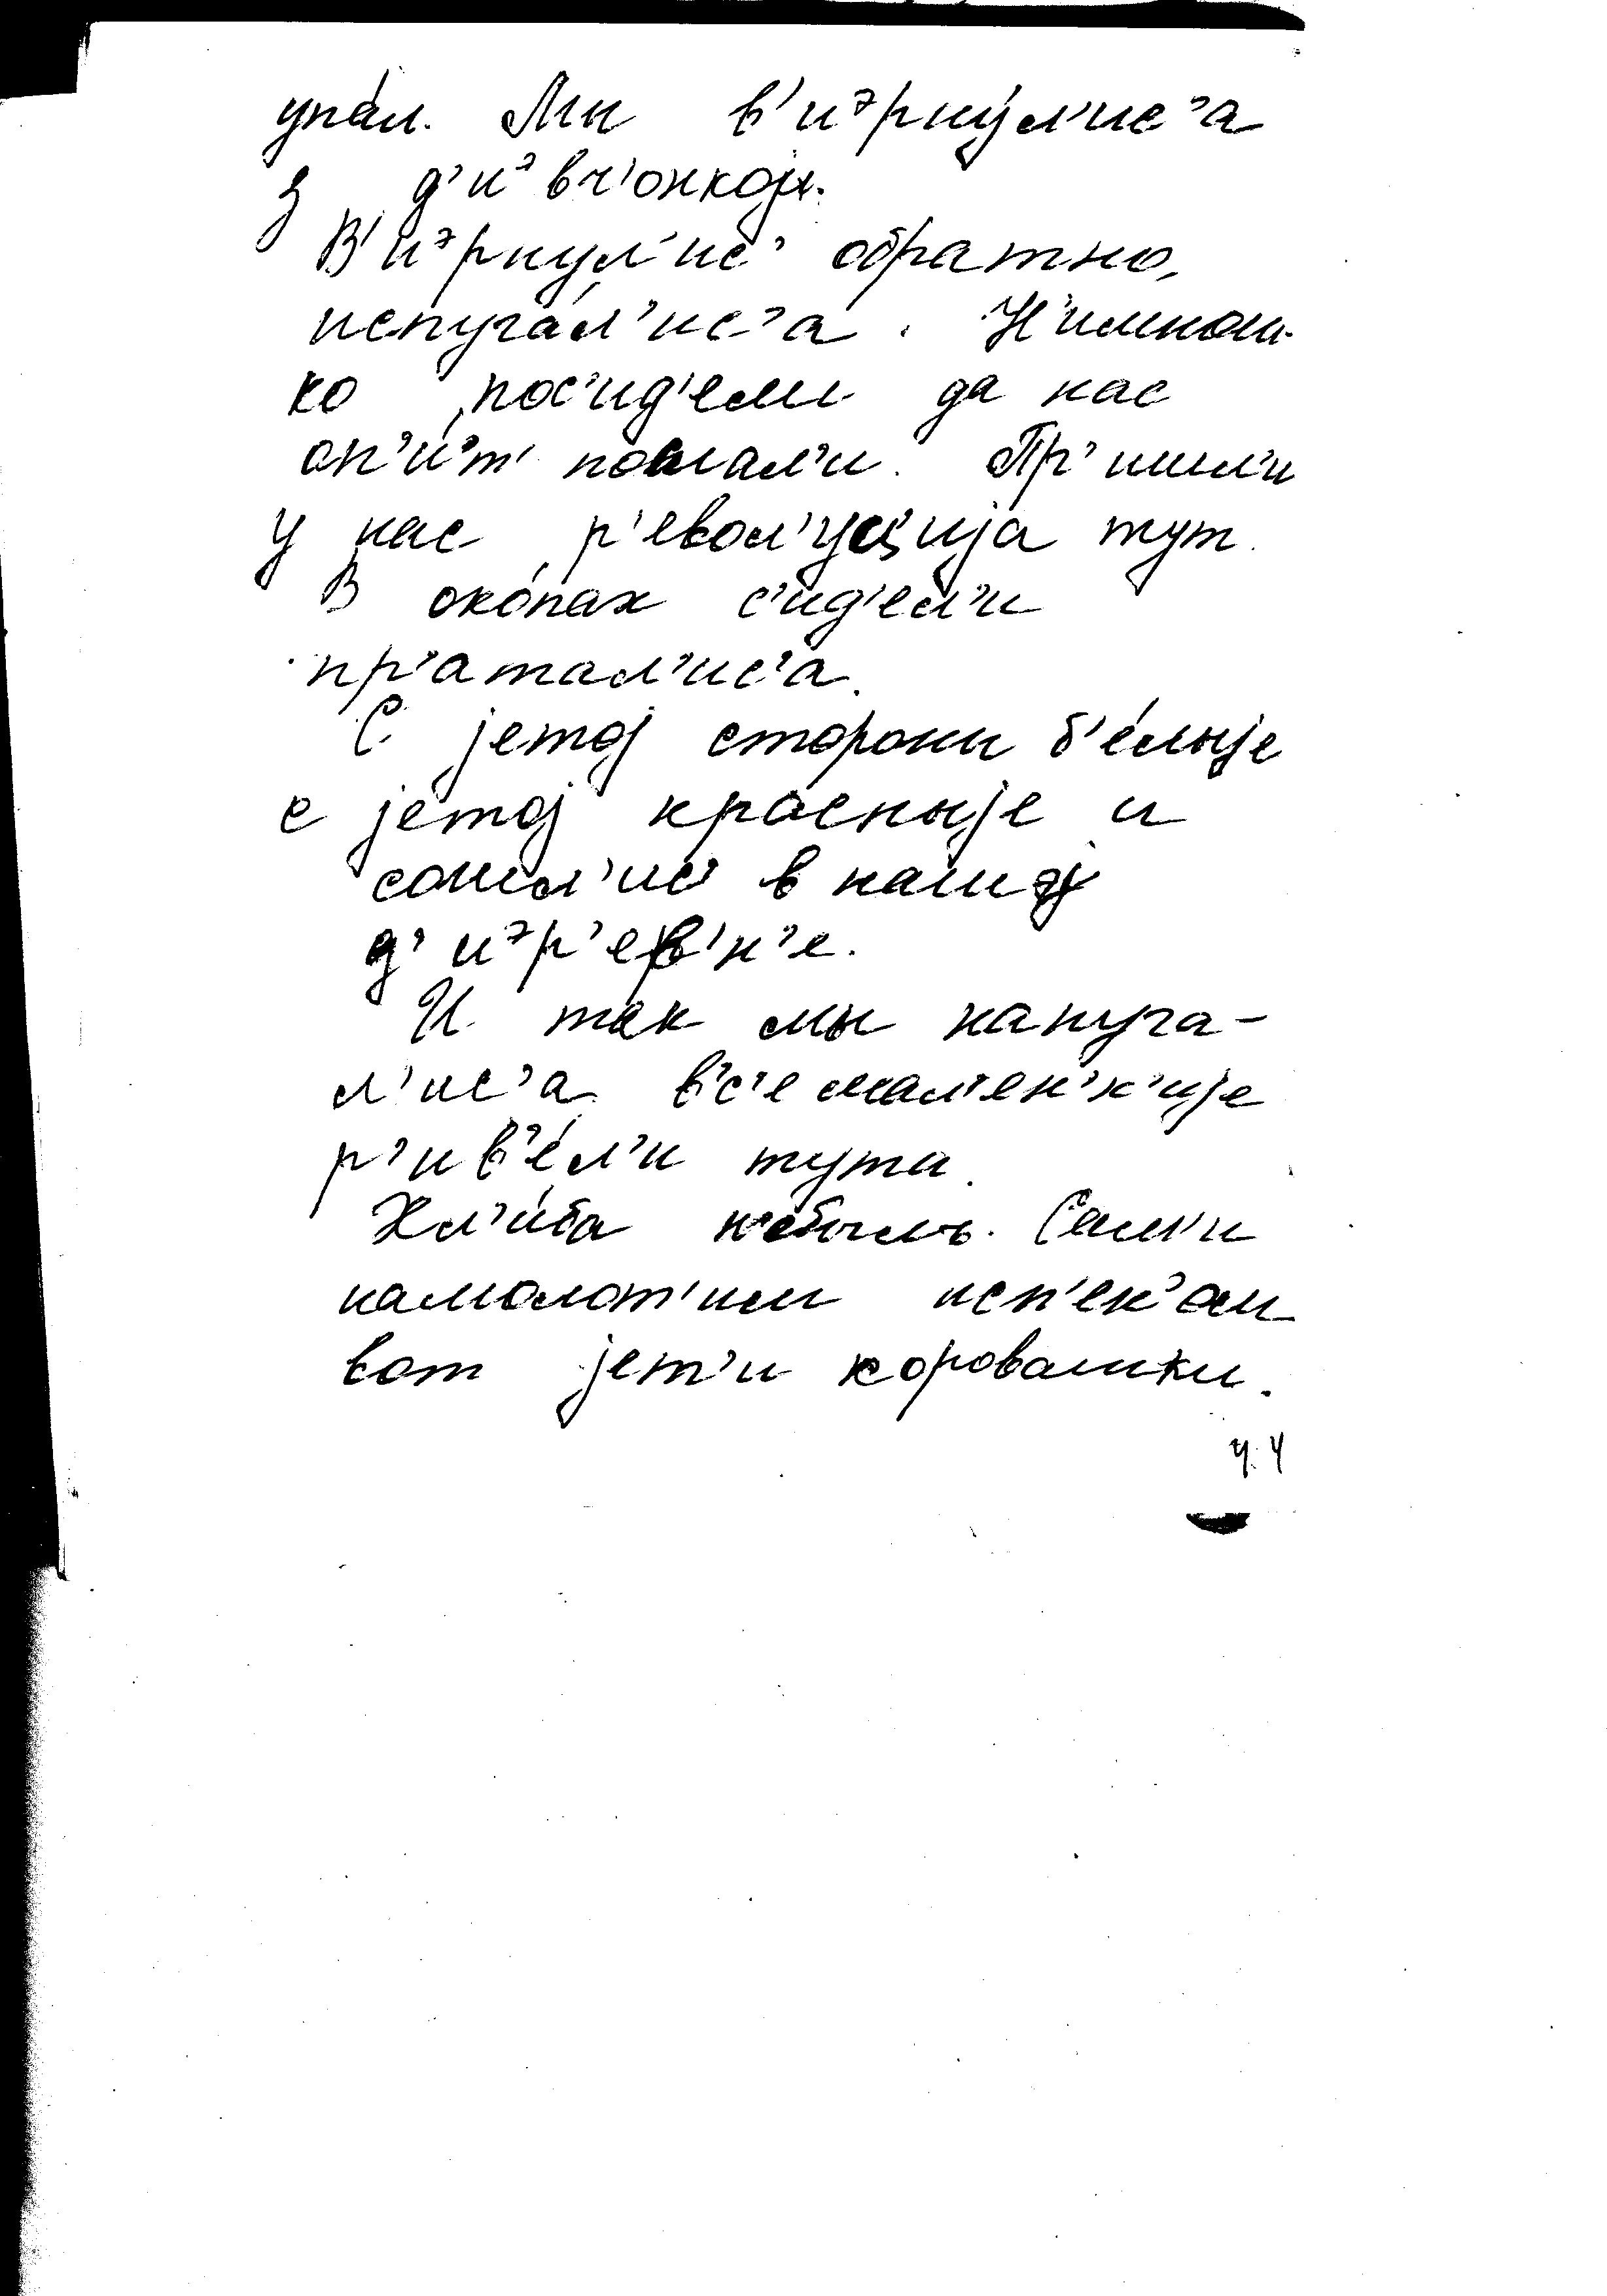 упа́л. Мы в'иэрну́л'ис'а
з д'иэвч'онкој.
В'иэрнул'ис' обратно,
испуга́л'ис'а. Н'имнош-
ко пос'ид'ели да нас
оп'и́т' погнал'и. Пр'ишл'и
у нас р'евол'уција тут.
В око́пах с'ид'ел'и
пр'атал'ис'а.
С јетој стороны б'е́лыје
с је́тој кра́сныје и
сошл'ис' в нашэј
д'иэр'евн'е.
И так мы напуга-
л'ис'а вс'е мал'ен'к'ије
р'ив'е́л'и тута.
Хл'и́ба н'е́было. Сам'и
намолот'им исп'ек'ом
вот јет'и коровашки.